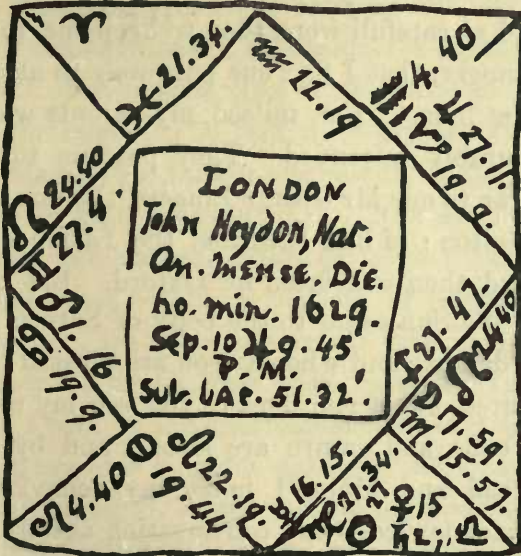 ♈
♓ 21.34
♒ 22.19
4. 40
♃ 27.11.
♑ 19.9.
☊ 24.40
♊ 27.4.
♂ 1.16
♋ 19.9.
LONDON
John Heydon, Nat.
An. MENSE. DIE.
ho. min. 1629.
Sep. 10 ♃ 9. 45
P. M.
Sub. LAT. 51.32'
♐ 27. 47.
24 40
☽ 7. 59.
♏. 15. 57.
♌ 4.40
19. 44
♌ 22.19.
16. 15.
21.34.
27
☉
♀ 15
♄ 2
♎